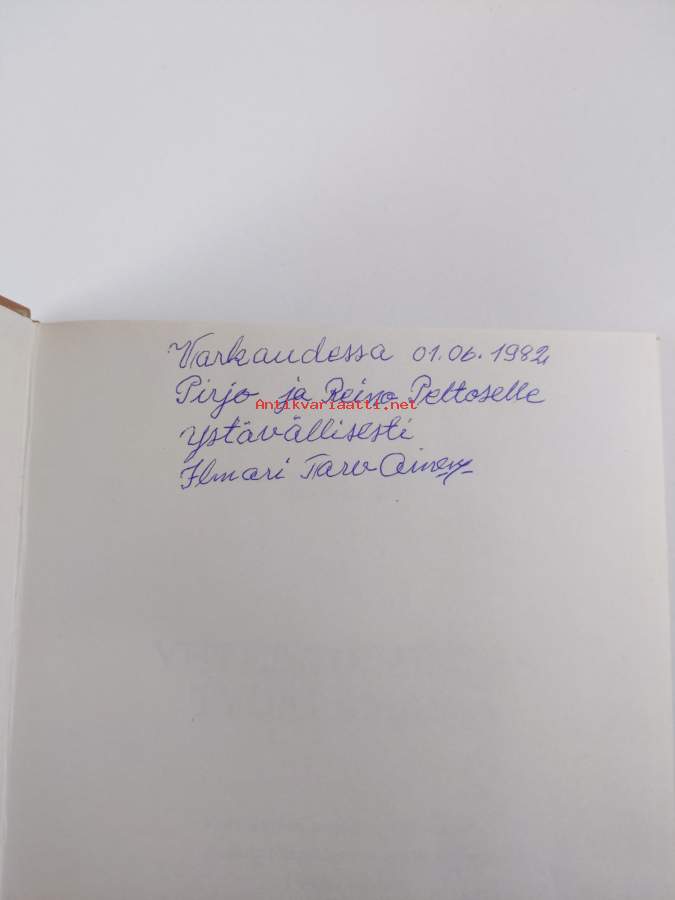 Varkaudessa 01.06.1982
Pirjo ja Reino Pettoselle
Antikvariaatti.net
ystävällisesti
Ilmari Tarvainen